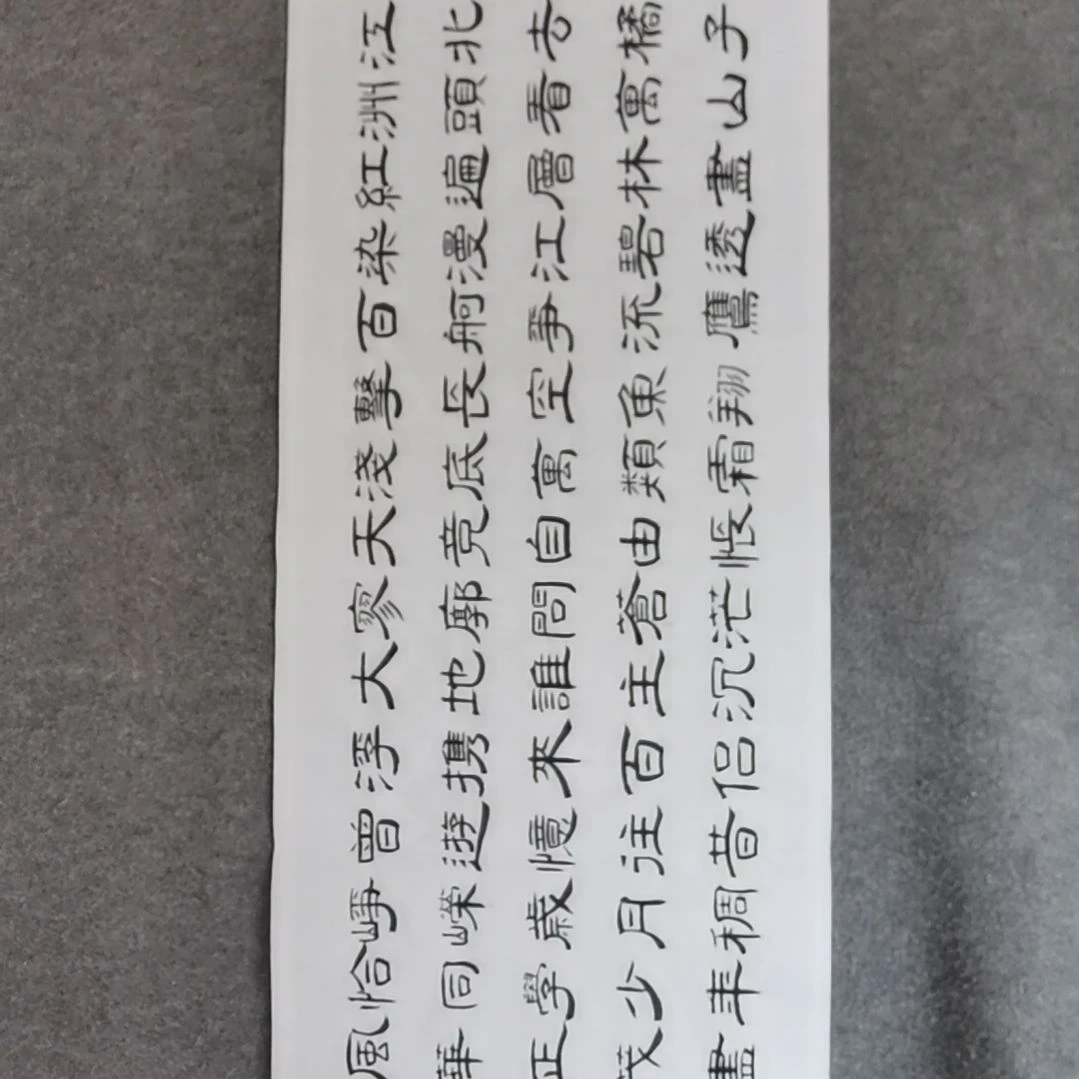 江北去橘子
洲頭看萬山
紅遍層林盡
染漫江碧透
百舸爭流鷹
擊長空魚翔
淺底萬類霜
天竟自由悵
寥廓問蒼茫
大地誰主沉
浮携來百侶
曾遊憶往昔
崢嶸歲月稠
恰同學少年
風華正茂書